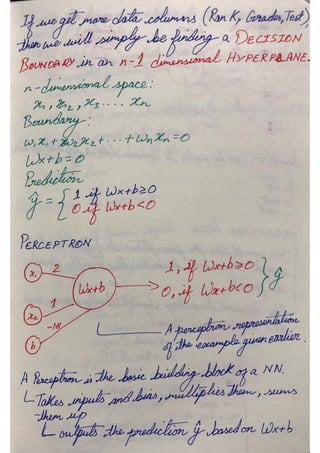 If we get more data columns (Rank, Grades, Test),
then we will simply be finding a DECISION
BOUNDARY in an n-1 dimensional HYPERPLANE.
n-dimensional space:
x₁, x₂, x₃ .... xn
Boundary:
w₁x₁ + w₂x₂ + ... + wnxn = 0
Wx+b = 0
Prediction
ŷ = { 1 if Wx+b ≥ 0
0 if Wx+b < 0
PERCEPTRON
x₁ 2
Wx+b
1, if Wx+b ≥ 0 } ŷ
0, if Wx+b < 0
x₂ 1
b -18
A perceptron representation
of the example given earlier.
A Perceptron is the basic building block of a NN.
Takes inputs and bias, multiplies them, sums
them up
outputs the prediction ŷ based on Wx+b